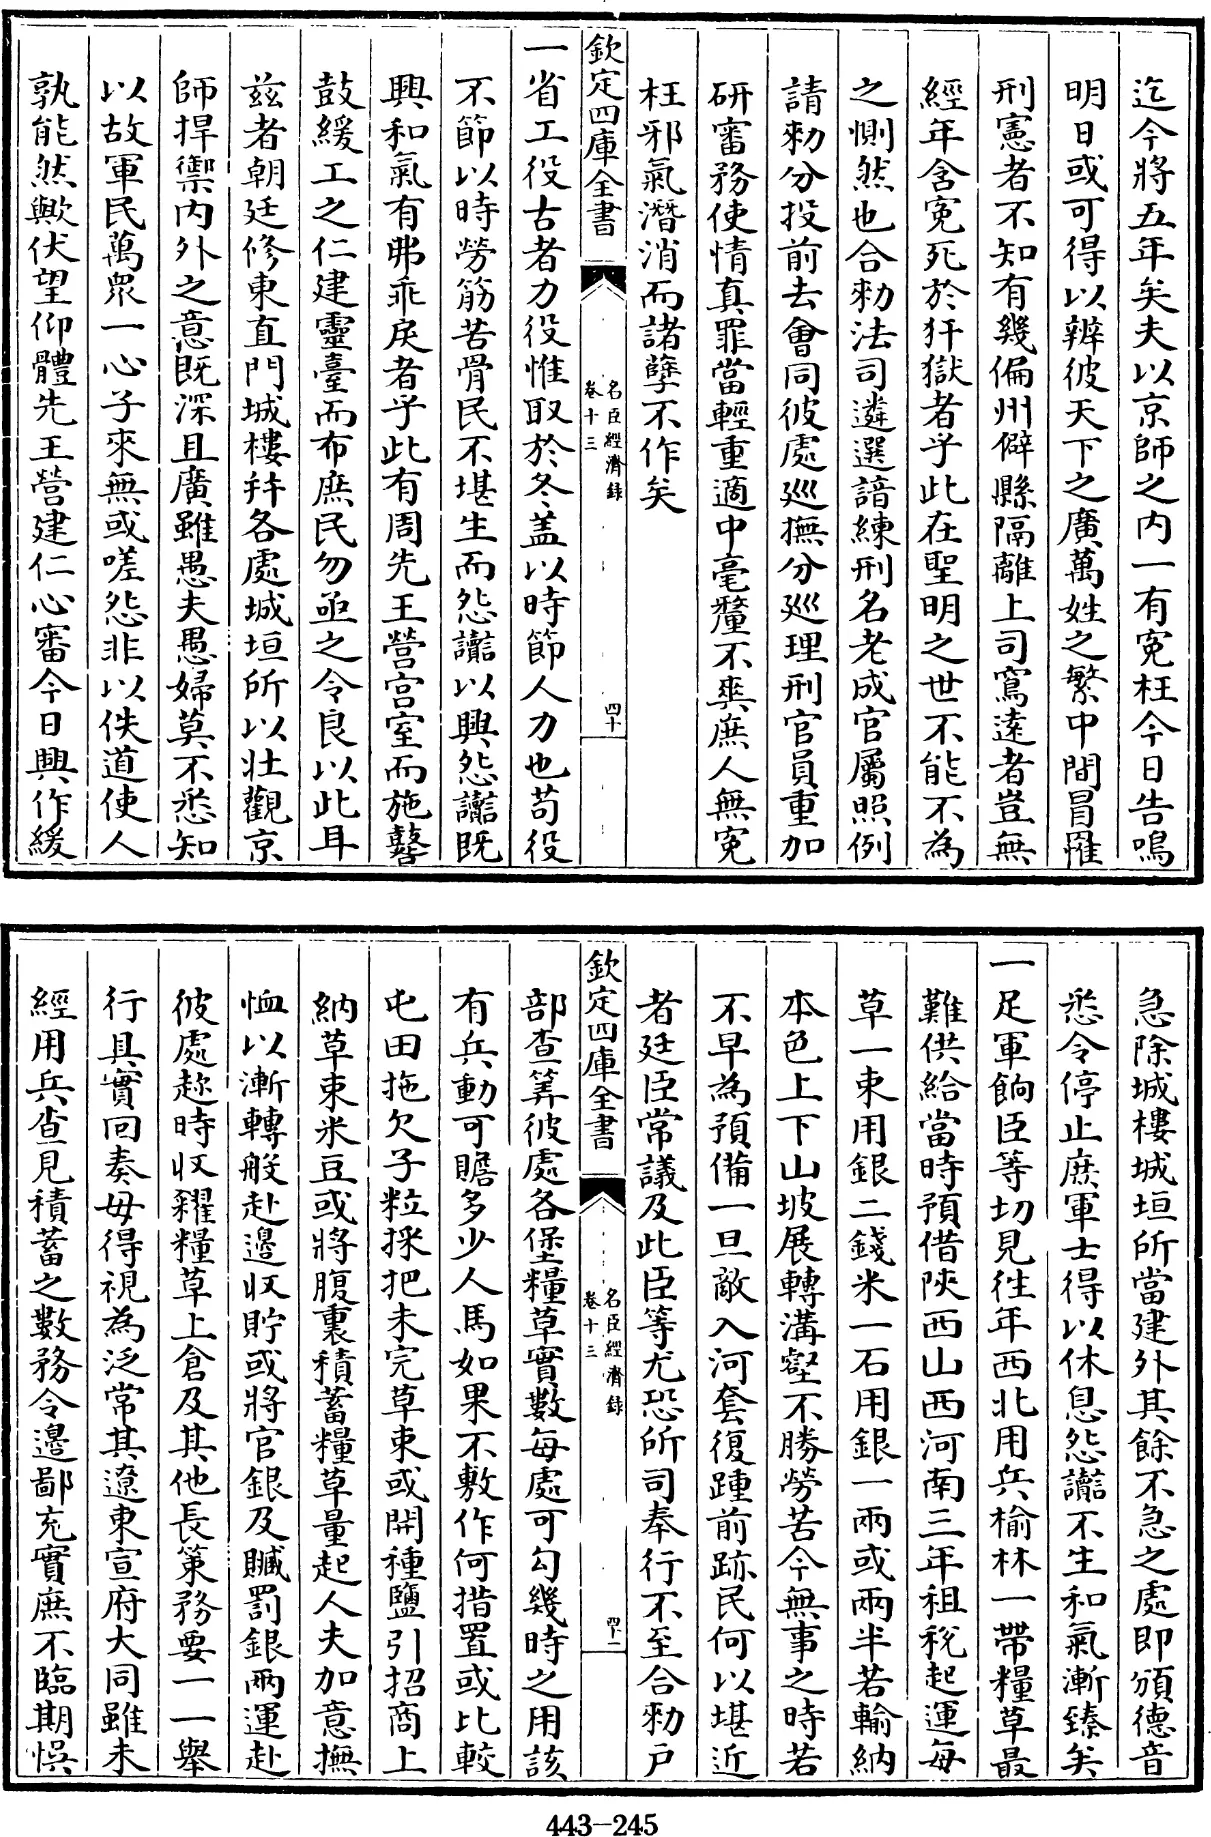 迄今將五年矣夫以京師之内一有寃枉今日告鳴
明日或可得以辨彼天下之廣萬姓之繁中間冒罹
刑憲者不知有幾偏州僻縣隔離上司寫遠者豈無
經年含寃死於犴獄者乎此在聖明之世不能不為
之惻然也合勅法司遴選諳練刑名老成官屬照例
請勅分投前去會同彼處巡撫分巡理刑官員重加
研審務使情真罪當輕重適中毫釐不爽庶人無寃
枉邪氣潛消而諸孽不作矣
欽定四庫全書
名臣經濟録
卷十三
四十
一省工役古者力役惟取於冬蓋以時節人力也苟役
不節以時勞筋苦骨民不堪生而怨讟以興怨讟既
興和氣有弗乖戾者乎此有周先王營宫室而施鼛
鼓緩工之仁建靈臺而布庶民勿亟之令良以此耳
兹者朝廷修東直門城樓并各處城垣所以壯觀京
師捍禦内外之意既深且廣雖愚夫愚婦莫不悉知
以故軍民萬衆一心子來無或嗟怨非以佚道使人
孰能然歟伏望仰體先王營建仁心審今日興作緩
急除城樓城垣所當建外其餘不急之處即頒德音
悉令停止庶軍士得以休息怨讟不生和氣漸臻矣
一足軍餉臣等切見徃年西北用兵榆林一帶糧草最
難供給當時預借陜西山西河南三年租稅起運每
草一束用銀二錢米一石用銀一兩或兩半若輸納
本色上下山坡展轉溝壑不勝勞苦今無事之時若
不早為預備一旦敵入河套復踵前跡民何以堪近
者廷臣常議及此臣等尤恐所司奉行不至合勅户
欽定四庫全書
名臣經濟録
卷十三
四十一
部查筭彼處各堡糧草實數每處可勾幾時之用該
有兵動可贍多少人馬如果不敷作何措置或比較
屯田拖欠子粒採把未完草束或開種鹽引招商上
納草束米豆或將腹裏積蓄糧草量起人夫加意撫
恤以漸轉般赴邉收貯或將官銀及贓罰銀兩運赴
彼處趂時收糴糧草上倉及其他長策務要一一舉
行具實回奏毋得視為泛常其遼東宣府大同雖未
經用兵查見積蓄之數務令邉鄙充實庶不臨期悞
443-245